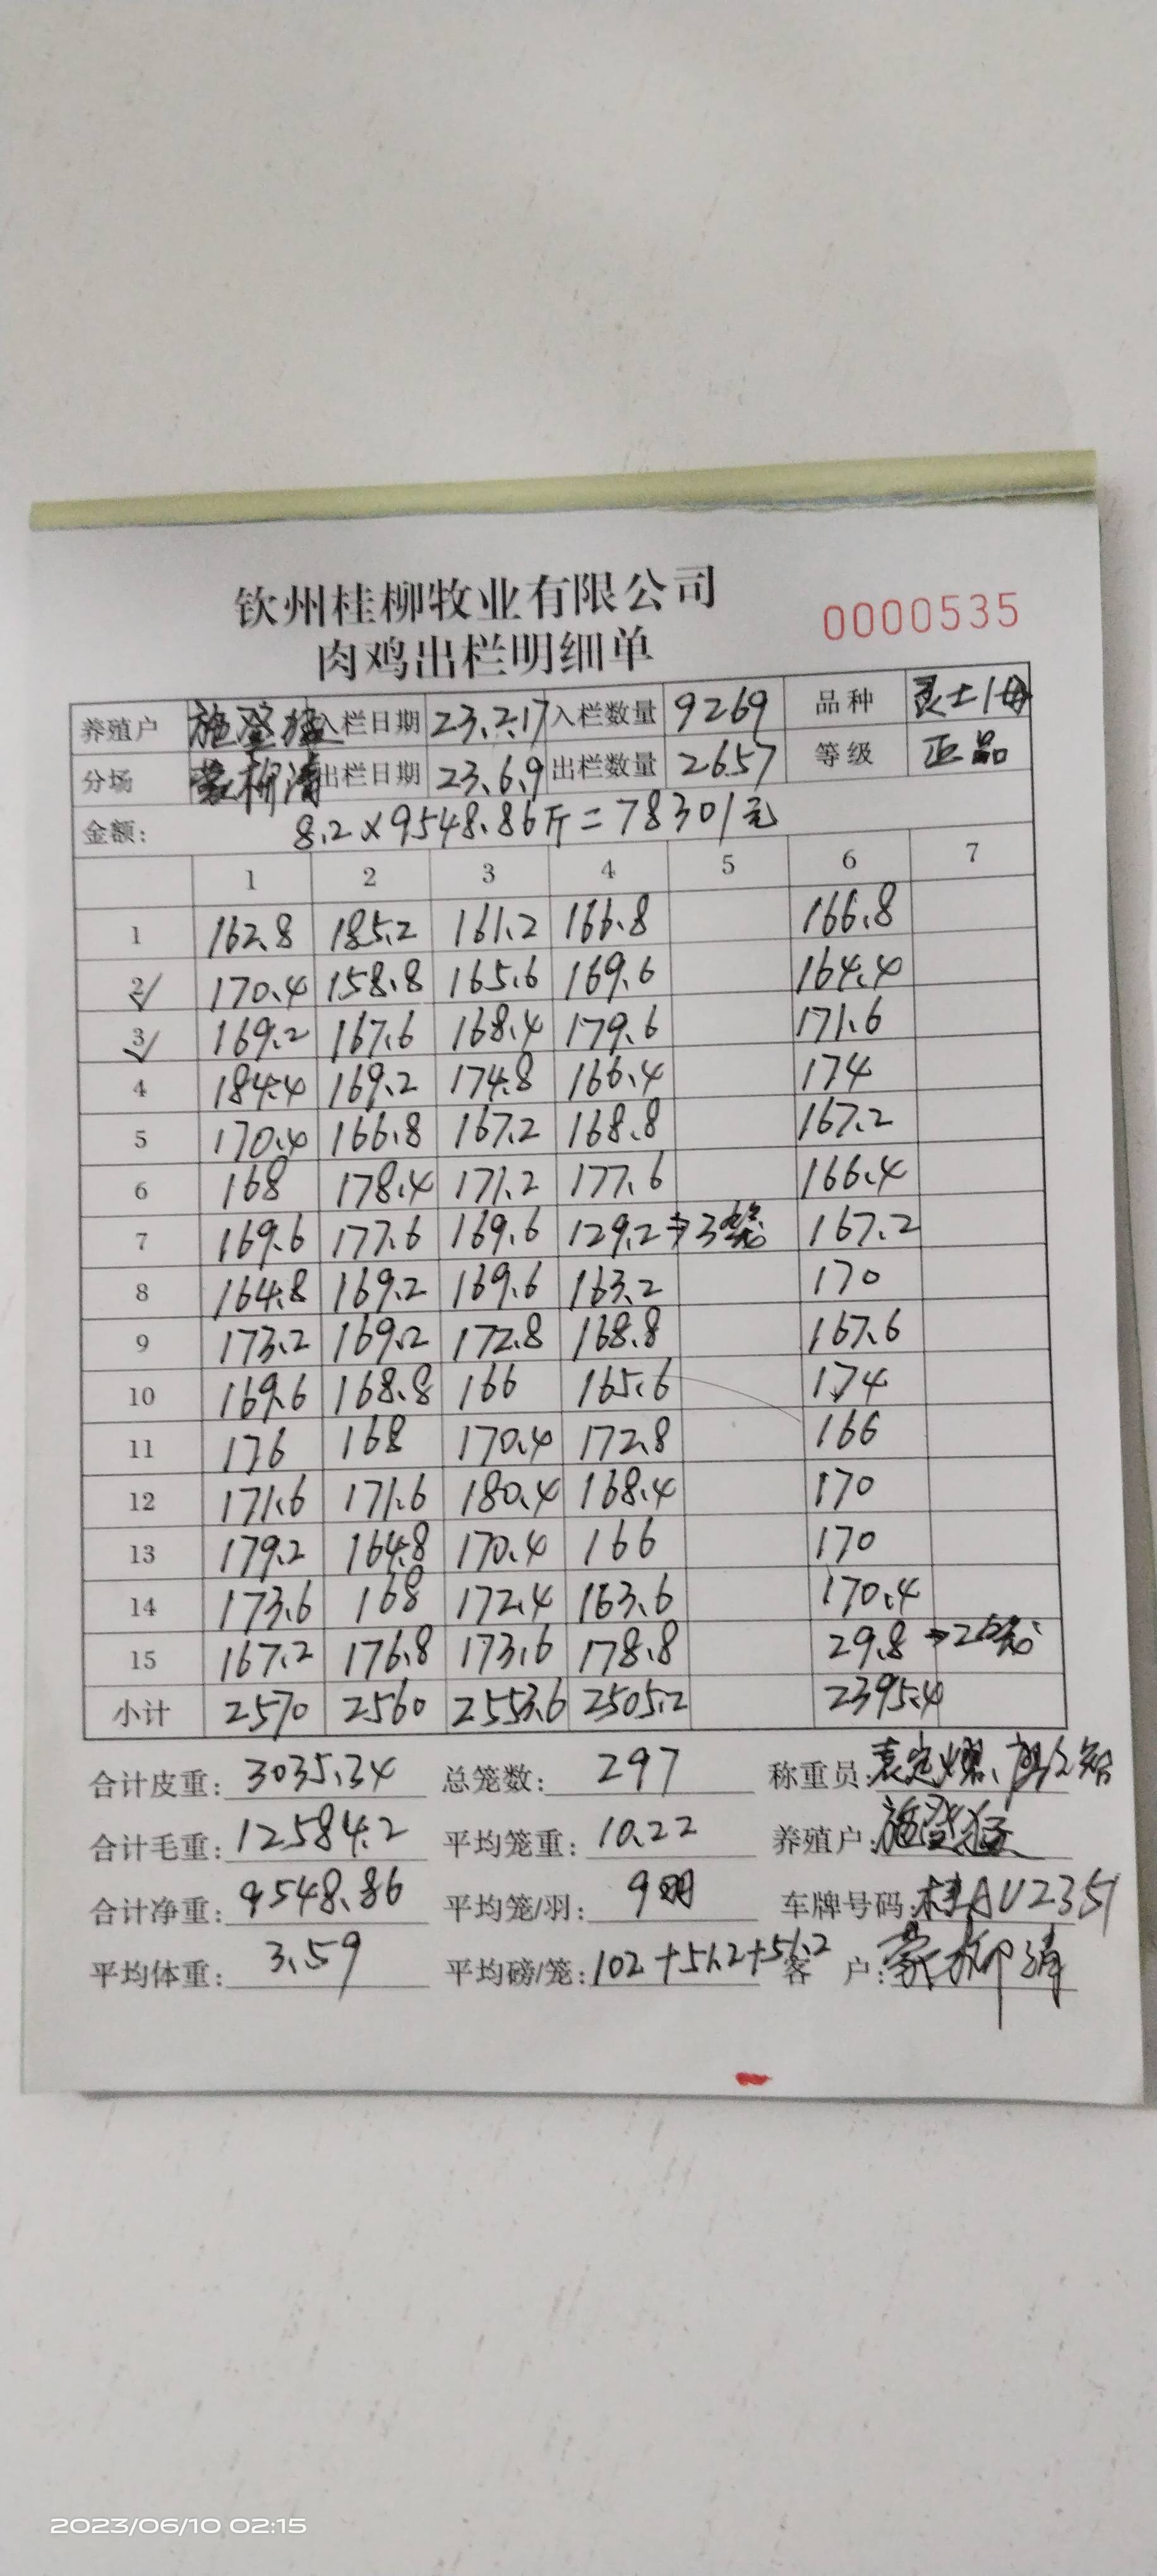 钦州桂柳牧业有限公司
0000535
肉鸡出栏明细单
养殖户 施登猛 入栏日期 23.2.17 入栏数量 9269 品种 土1母
分场 蒙柳清 出栏日期 23.6.9 出栏数量 2657 等级 正品
金额: 8.2×9548.86斤=78301元
1 2 3 4 5 6 7
1 162.8 185.2 161.2 166.8 166.8
2 170.4 158.8 165.6 169.6 164.4
3 169.2 167.6 168.4 179.6 171.6
4 184.4 169.2 174.8 166.4 174
5 170.4 166.8 167.2 168.8 167.2
6 168 178.4 171.2 177.6 166.4
7 169.6 177.6 169.6 129.2→3笼 167.2
8 164.8 169.2 169.6 163.2 170
9 173.2 169.2 172.8 168.8 167.6
10 169.6 168.8 166 165.6 174
11 176 168 170.4 172.8 166
12 171.6 171.6 180.4 168.4 170
13 179.2 164.8 170.4 166 170
14 173.6 168 172.4 163.6 170.4
15 167.2 176.8 173.6 178.8 29.8→2笼
小计 2570 2560 2553.6 2505.2 2395.4
合计皮重: 3035.34 总笼数: 297 称重员:
合计毛重: 12584.2 平均笼重: 10.22 养殖户: 施登猛
合计净重: 9548.86 平均笼/羽: 9羽 车牌号码: 桂AU2351
平均体重: 3.59 平均磅/笼: 102+51.2+51.2 客户: 蒙柳清
2023/06/10 02:15